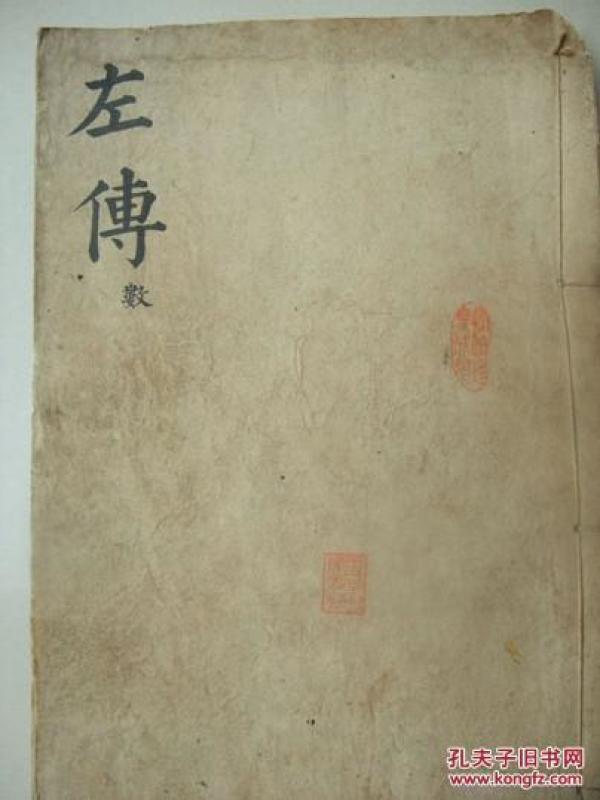 左傳
數
孔夫子旧书网
www.kongfz.com